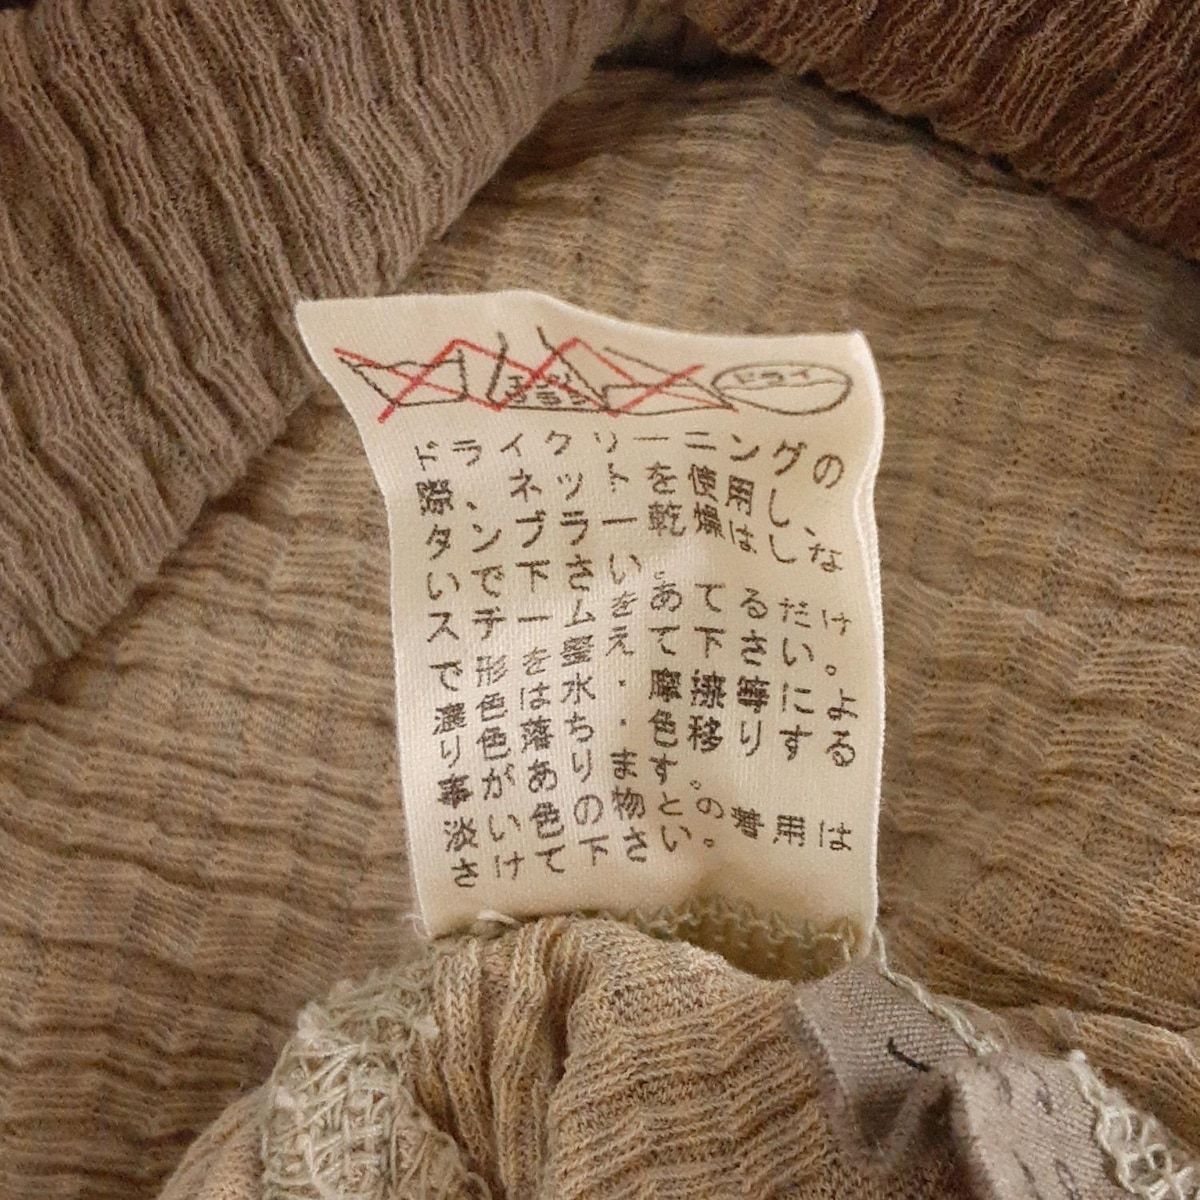 ドライ
ドライクリーニングの
際、ネットを使用し、
タンブラー乾燥はしな
いで下さい。
スチームをあてるだけ
で形を整えて下さい。
濃色は水・摩擦によ
り色落ち・色移りする
事があります。
淡い色の物との着用は
さけて下さい。